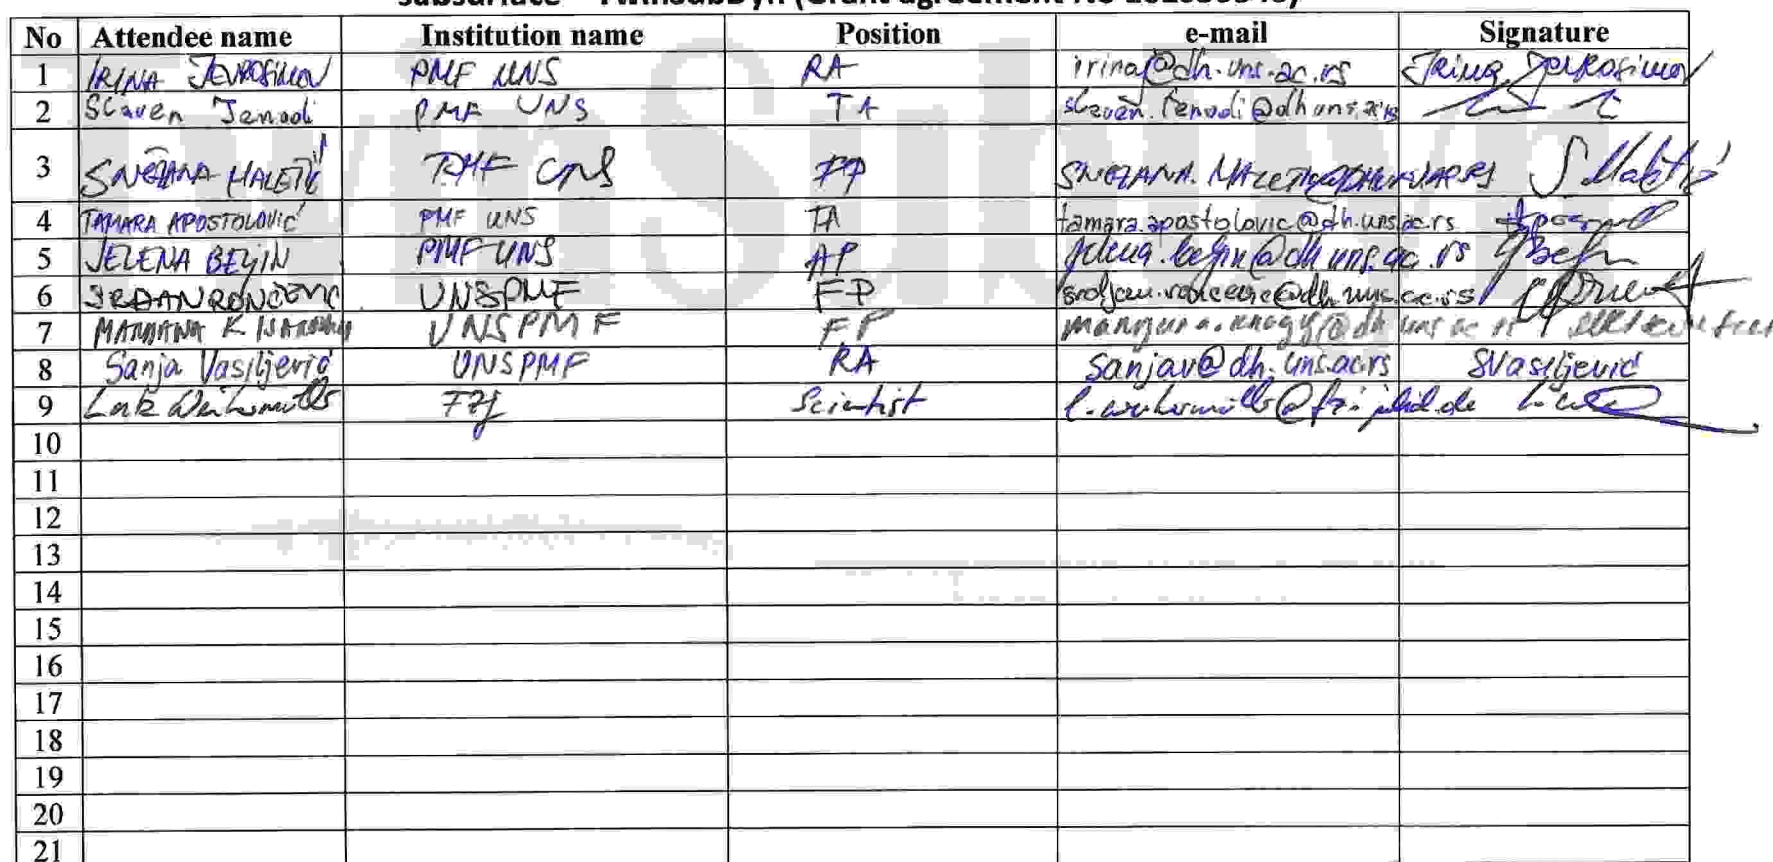 No Attendee name Institution name Position e-mail Signature
1 IRINA JEVROSIMOV PMF UNS RA irinaj@dh.uns.ac.rs Irina Jevrosimov
2 Slaven Tenodi PMF UNS TA slaven.tenodi@dh.uns.ac.rs
3 SNEŽANA MALETIĆ PMF UNS FP SNEZANA.MALETIC@DH.UNS.AC.RS S Maletić
4 TAMARA APOSTOLOVIĆ PMF UNS TA tamara.apostolovic@dh.uns.ac.rs
5 JELENA BEYIN PMF UNS AP jelena.beljin@dh.uns.ac.rs
6 SRĐAN RONČEVIĆ UNSPMF FP srdjan.roncevic@dh.uns.ac.rs
7 UNSPMF FP
8 Sanja Vasiljević UNSPMF RA sanjav@dh.uns.ac.rs SVasiljević
9 FZJ Scientist
10
11
12
13
14
15
16
17
18
19
20
21